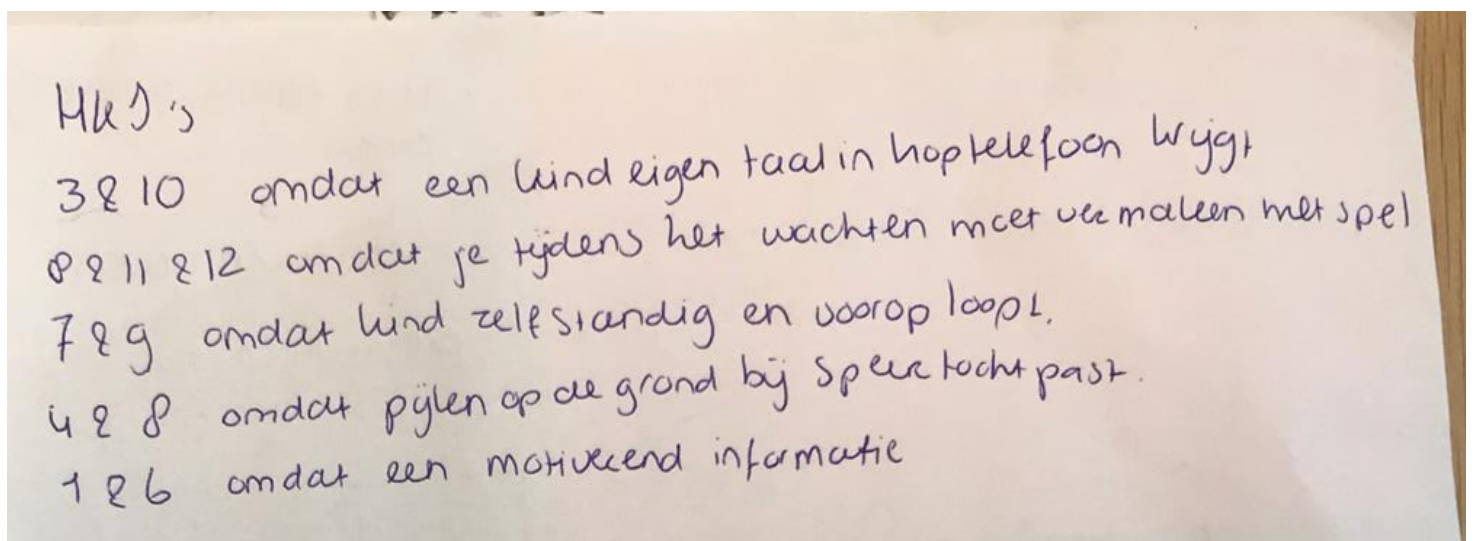 HKJ's
3 & 10 omdat een kind eigen taal in hoptelefoon krijgt
8 & 11 & 12 omdat je tijdens het wachten moet vermaken met spel
7 & 9 omdat kind zelfstandig en voorop loopt.
4 & 8 omdat pijlen op de grond bij speurtocht past.
1 & 6 omdat een motiverend informatie